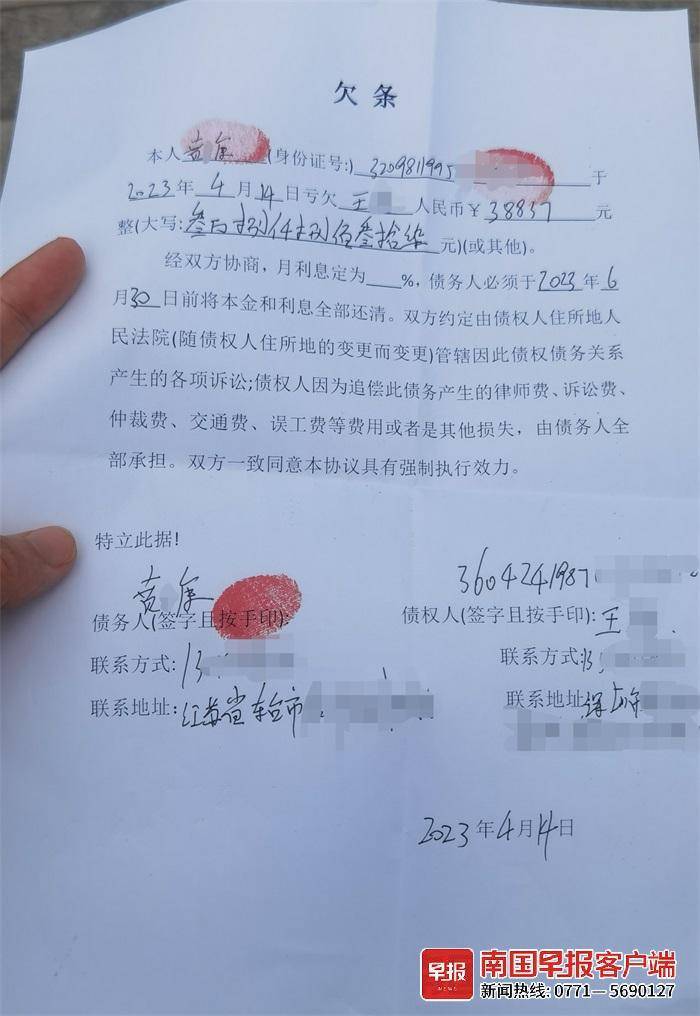 欠条
本人 黄 (身份证号:) 320981995 于
2023年4月14日亏欠 王 人民币￥38837元
整(大写: 叁万捌仟捌佰叁拾柒 元)(或其他)。
经双方协商，月利息定为 %，债务人必须于2023年6
月30日前将本金和利息全部还清。双方约定由债权人住所地人
民法院(随债权人住所地的变更而变更)管辖因此债权债务关系
产生的各项诉讼;债权人因为追偿此债务产生的律师费、诉讼费、
仲裁费、交通费、误工费等费用或者是其他损失，由债务人全
部承担。双方一致同意本协议具有强制执行效力。
特立此据!
黄
债务人(签字且按手印):
联系方式:1
联系地址:江苏省东台市
3604241987
债权人(签字且按手印):王
联系方式:
联系地址:
2023年4月14日
早报 南国早报客户端
新闻热线: 0771—5690127